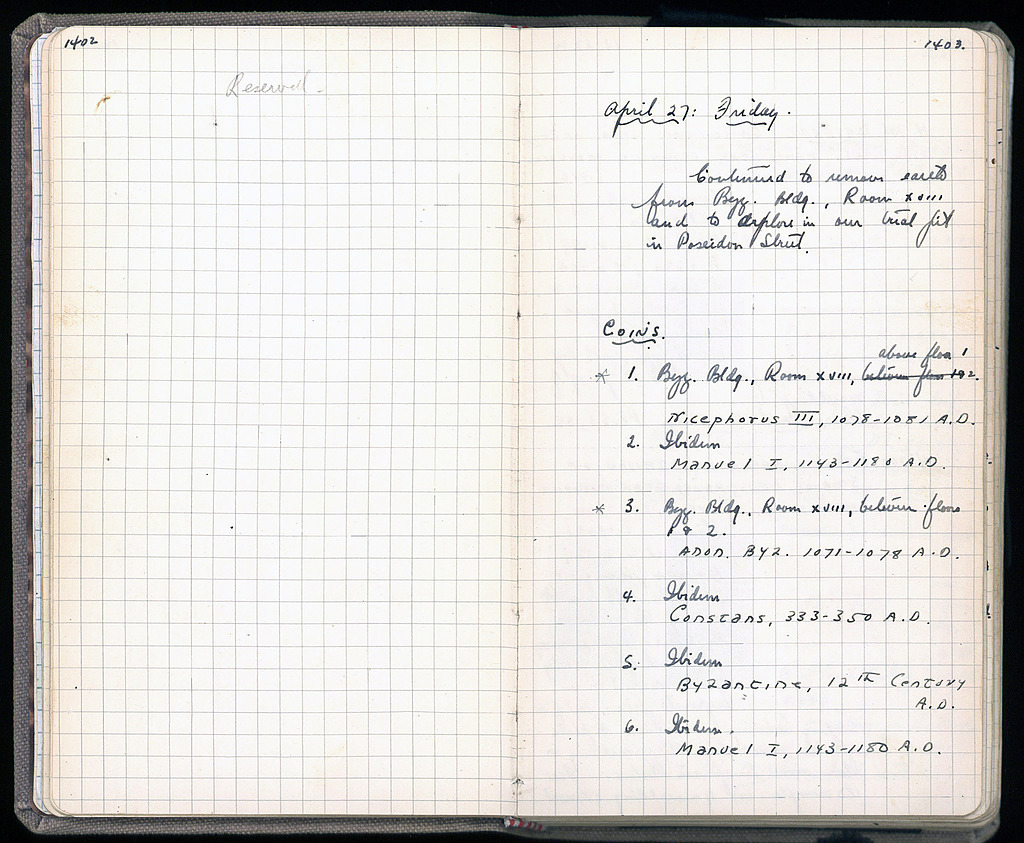 1402
Reserved.
1403.
April 27: Friday.
Continued to remove earth
from Byz. Bldg., Room XVIII
and to explore in our trial pit
in Poseidon Street.
Coins.
above floor 1
* 1. Byz. Bldg., Room XVIII, between floors 1 & 2.
Nicephorus III, 1078-1081 A.D.
2. Ibidem
Manuel I, 1143-1180 A.D.
* 3. Byz. Bldg., Room XVIII, between floors
1 & 2.
Anon. Byz. 1071-1078 A.D.
4. Ibidem
Constans, 333-350 A.D.
5. Ibidem
Byzantine, 12th Century
A.D.
6. Ibidem.
Manuel I, 1143-1180 A.D.